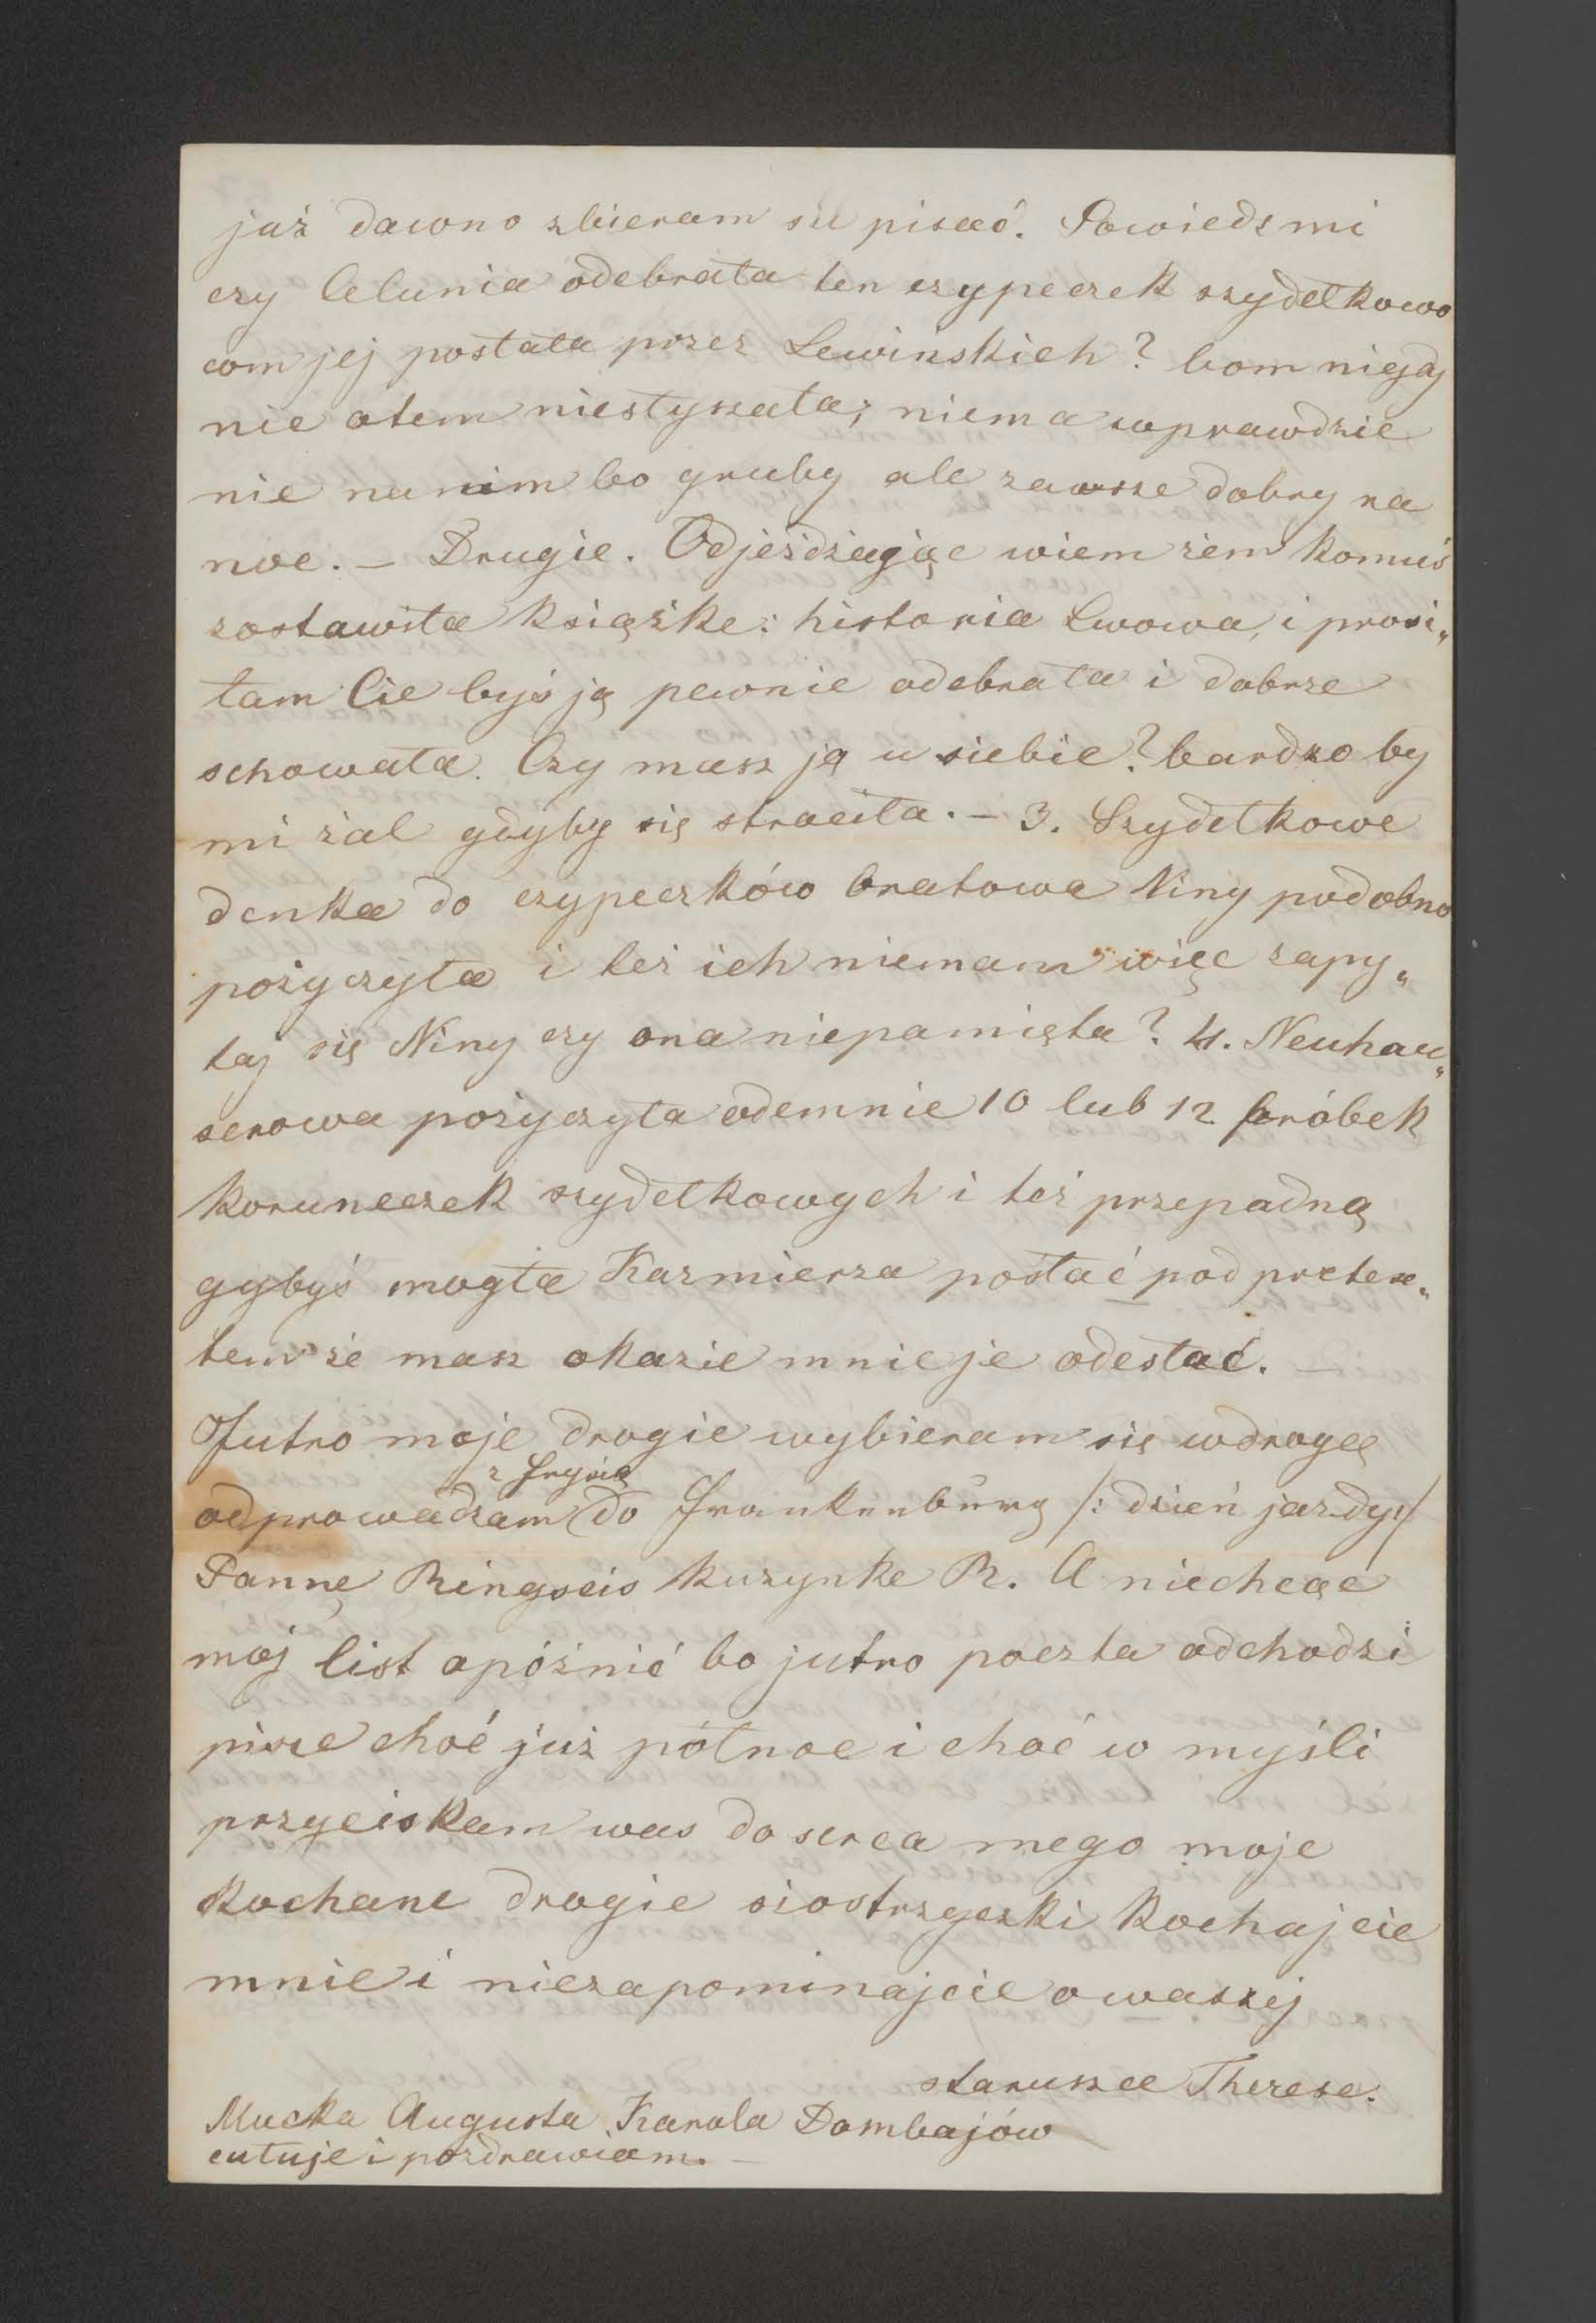 już dawno zbieram sie pisać. Powiedz mi
czy Celunia odebrała ten czypeczek szydełkowo
com jej posłała przez Lewinskich? bom nigdy
nic otem niesłyszała; niema wprawdzie
nic na nim bo gruby ale zawsze dobry na
noc. – Drugie. Odjeżdżając wiem żem komuś
zostawiła książke: historia Lwowa, i prosi„
łam Cie byś ją pewnie odebrała i dobrze
schowała. Czy masz ją u siebie? bardzo by
mi żal gdyby się straciła. – 3. Szydełkowe
denka do czypeczków bratowa Niny podobno
pożyczyła i też ich niemam więc zapy„
taj się Niny czy ona niepamięta? 4. Neuhau„
serowa pożyczyła odemnie 10 lub 12 próbek
koruneczek szydełkowych i też przepadną
gybyś mogła Kazmierza posłać pod pretex„
tem że masz okazie mnie je odesłać. –
Jutro moje drogie wybieram się wdrogę
z Fryzią
odprowadzam do Frankenburg /: dzień jazdy:/
Pannę Ringseis kuzynke R. A niechcąć
moj list opóźnić bo jutro poczta odchodzi
pisze choć już północ i choć w myśli
przyciskam was do serca mego moje
kochane drogie siostrzyczki kochajcie
mnie i niezapominajcie o waszej
staruszce Therese.
Mucka Augusta Karola Dombajów
cutuje i pozdrawiam. –